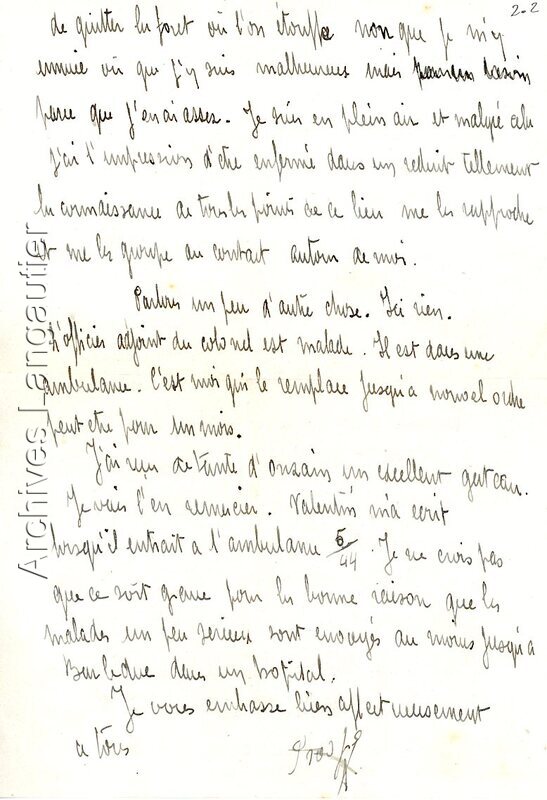 2.2
de quitter la foret où l'on étouffe non que je m'y
ennuie où que j'y suis malheureux mais
parce que j'en ai assez. Je suis en plein air et malgré cela
j'ai l'impression d'etre enfermé dans un reduit tellement
la connaissance de tous les points de ce lieu me les rapproche
et me les groupe au contact autour de moi.
Parlons un peu d'autre chose. Ici rien.
L'officier adjoint du colonel est malade. Il est dans une
ambulance. C'est moi qui le remplace jusqu'a nouvel ordre
peut etre pour un mois.
J'ai reçu de tante d'Onzain un excellent gateau.
Je vais l'en remercier. Valentin m'a ecrit
lorsqu'il entrait a l'ambulance 5/44. Je ne crois pas
que ce soit grave pour la bonne raison que les
malades un peu serieux sont envoyés au moins jusqu'a
Bar le duc dans un hopital.
Je vous embrasse bien affectueusement
a tous
Archives Langautier